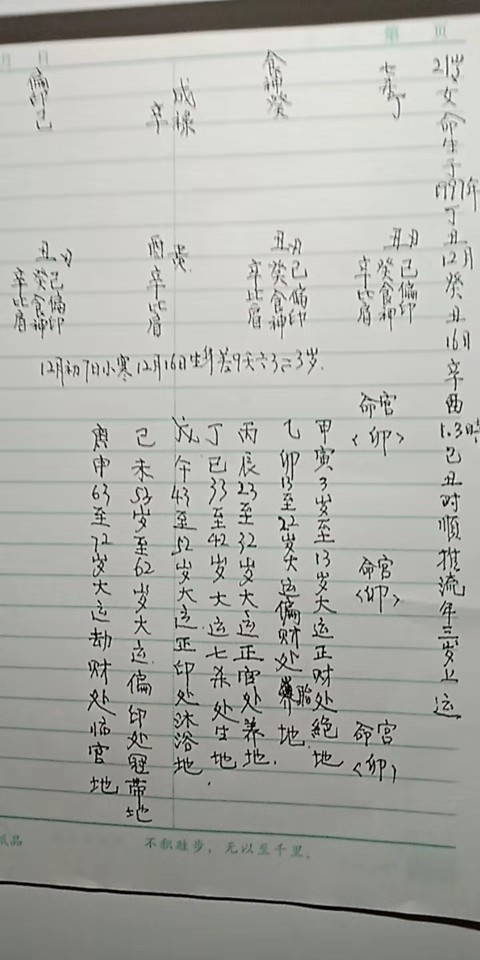 第 页
月 日
21岁女命生于1997年丁丑12月癸丑16日辛酉1.3時己丑时顺推流年三岁上运
七杀丁
食神癸
成禄
辛
偏印己
丑月
己偏印
癸食神
辛比肩
丑月
己偏印
癸食神
辛比肩
酉
辛比肩
丑月
己偏印
癸食神
辛比肩
12月初7日小寒12月16日生
命宫
<卯>
命宫
<卯>
命宫
<卯>
甲寅3岁至13岁大运正财处絕地
乙卯13至22岁大运偏财处胎地.
丙辰23至32岁大运正官处养地.
丁巳33至42岁大运七杀处生地.
戊午43至52岁大运正印处沐浴地
己未53岁至62岁大运偏印处冠带地
庚申63至72岁大运劫财处临官地
纸品
不积跬步，无以至千里。